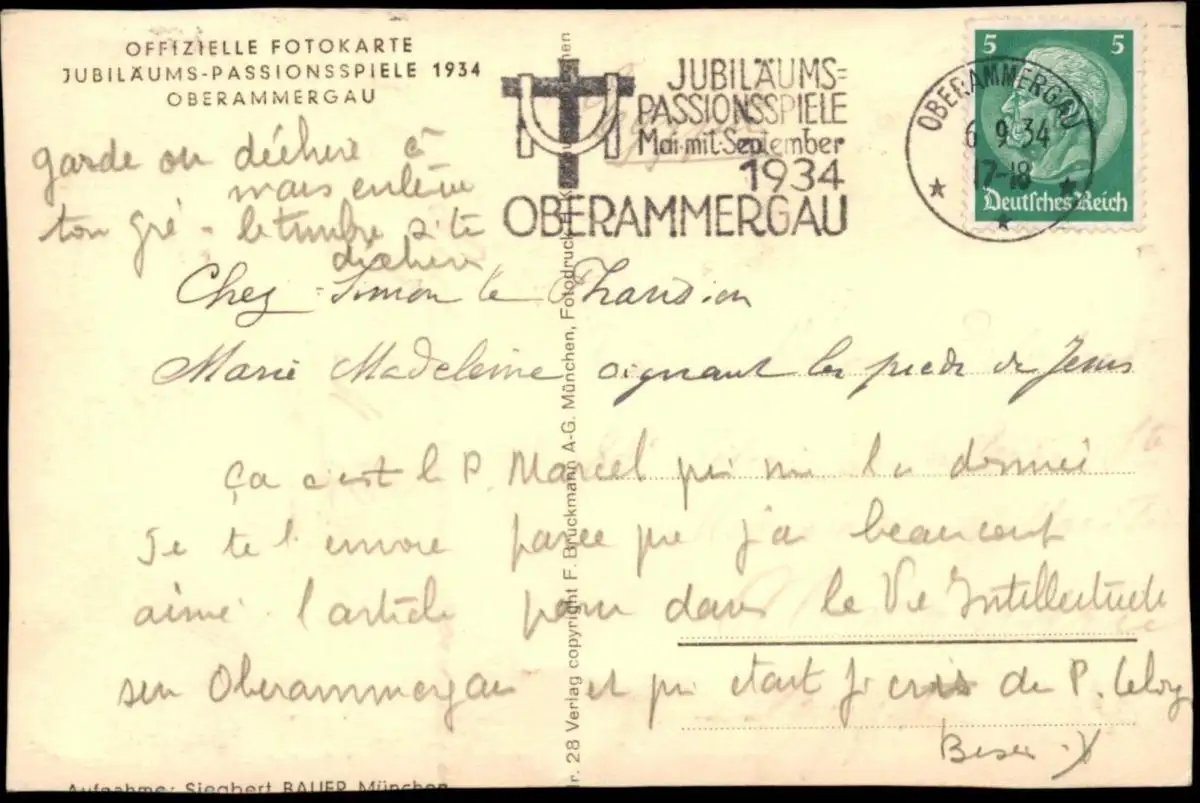 OFFIZIELLE FOTOKARTE
JUBILÄUMS-PASSIONSSPIELE 1934
OBERAMMERGAU
JUBILÄUMS=
PASSIONSSPIELE
Mai mit September
1934
OBERAMMERGAU
5 5
Deutsches Reich
OBERAMMERGAU
6.9.34
17-18
garde ou déchire à
mais enlève
ton gré - le timbre si tu
déchire
Chez Simon le Pharisien
Marie Madeleine oignant les pieds de Jésus
Ça c'est le P. Marcel qui me l'a donnée
Je te l'envoie parce que j'ai beaucoup
aimé l'article paru dans la Vie Intellectuelle
sur Oberammergau et qui était je crois du P.
Nr. 28 Verlag copyright F. Bruckmann A-G. München, Fotodruck
Aufnahme: Siegbert BAUER München